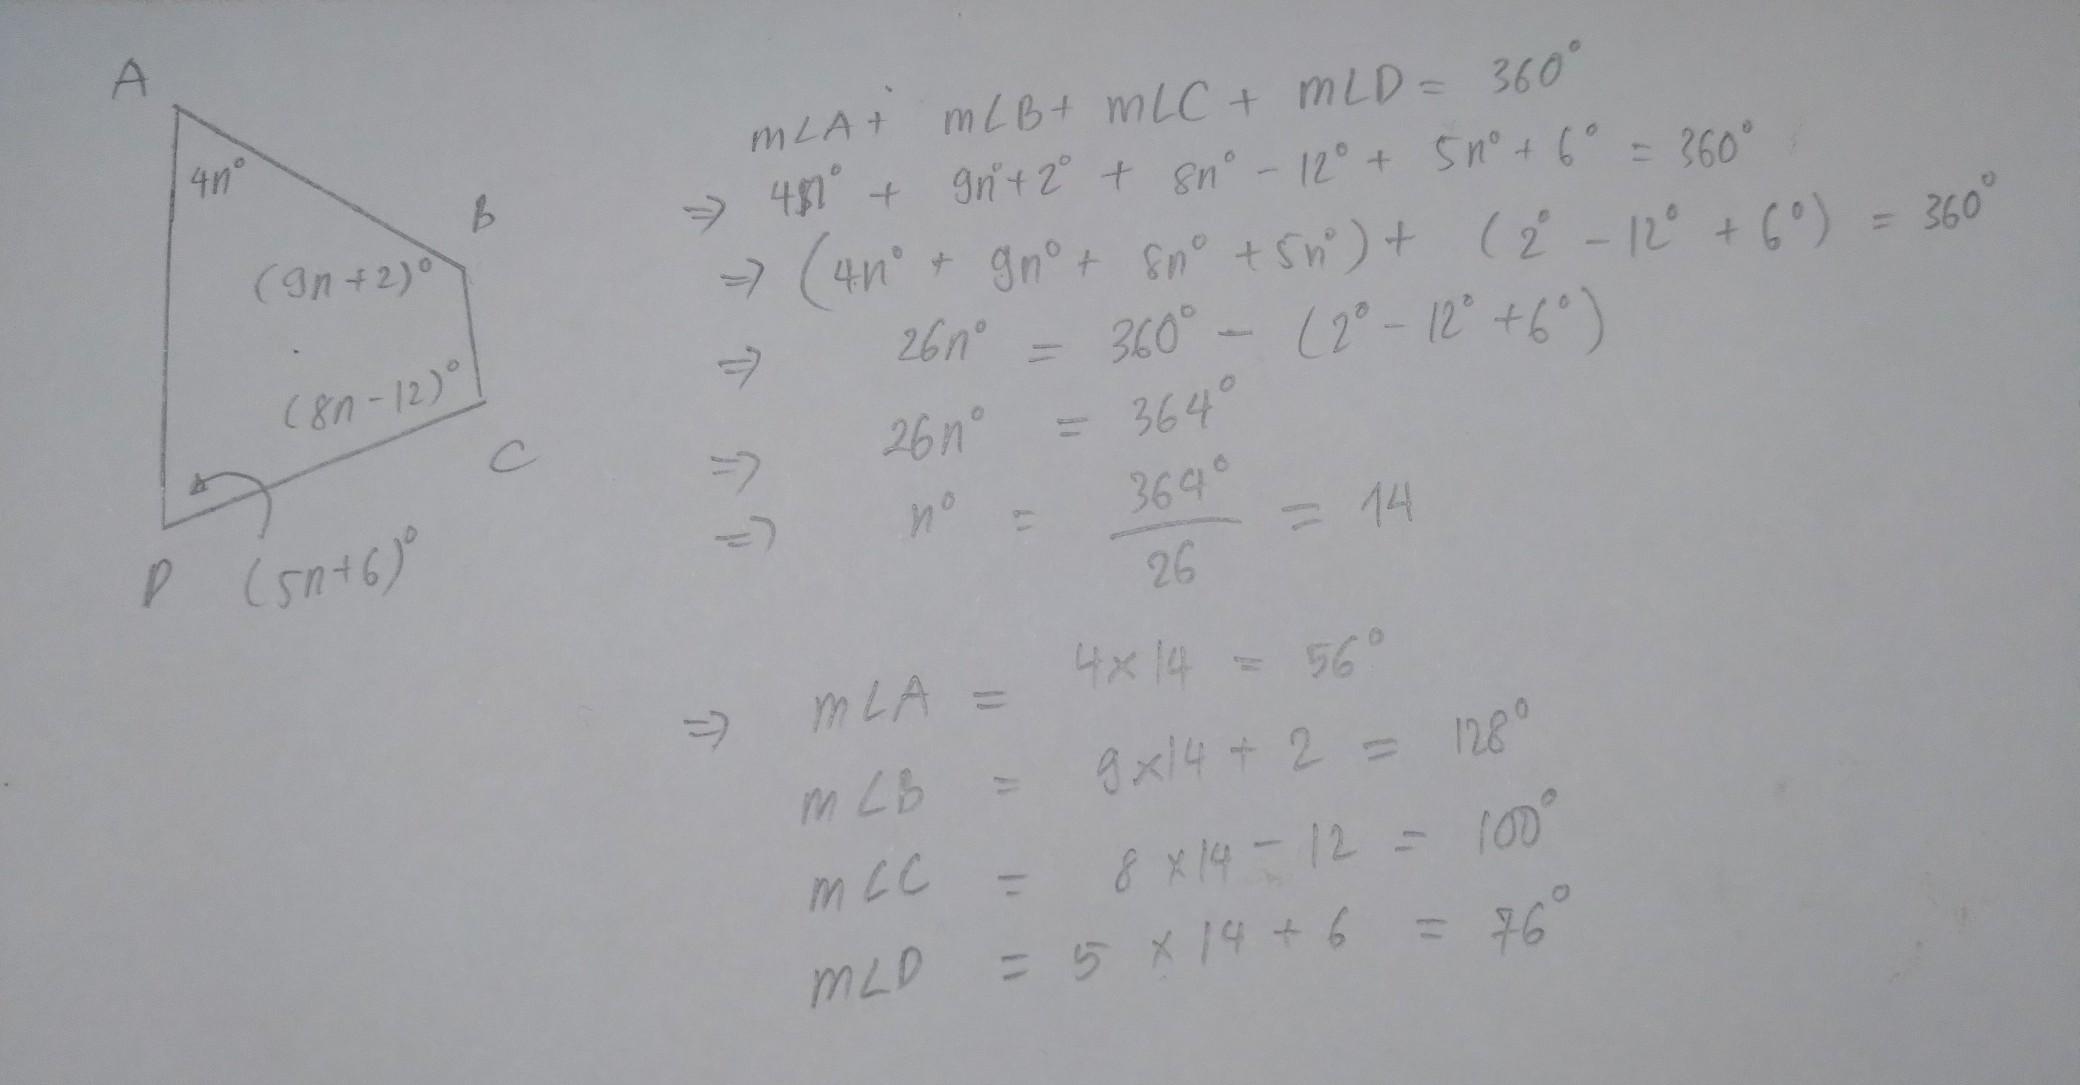 A
4n°
B
(9n+2)°
(8n-12)°
C
D (5n+6)°
m∠A + m∠B + m∠C + m∠D = 360°
⇒ 4n° + 9n°+2° + 8n° - 12° + 5n° + 6° = 360°
⇒ (4n° + 9n° + 8n° + 5n°) + (2° - 12° + 6°) = 360°
⇒ 26n° = 360° - (2° - 12° + 6°)
⇒ 26n° = 364°
⇒ n° = 364° / 26 = 14
⇒ m∠A = 4×14 = 56°
m∠B = 9×14 + 2 = 128°
m∠C = 8×14 - 12 = 100°
m∠D = 5 × 14 + 6 = 76°